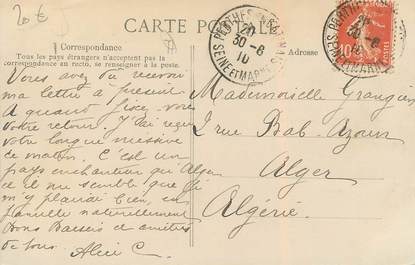 20 €
CARTE POSTALE
Correspondance
Tous les pays étrangers n'acceptent pas la
correspondance au recto, se renseigner à la poste.
Adresse
PERTHES
SEINE ET MARNE
20
30-6
10
10
Vous avez dû recevoir
ma lettre à présent
À quand fixez vous
votre retour. J'ai reçu
votre longue missive
ce matin. C'est un
pays enchanteur qu'Alger
et il me semble que je
m'y plairai bien, en
famille naturellement
Bons Baisers et amitiés
de tous. Alice C.
Mademoiselle
2 rue Bab Azoun
Alger
Algérie.